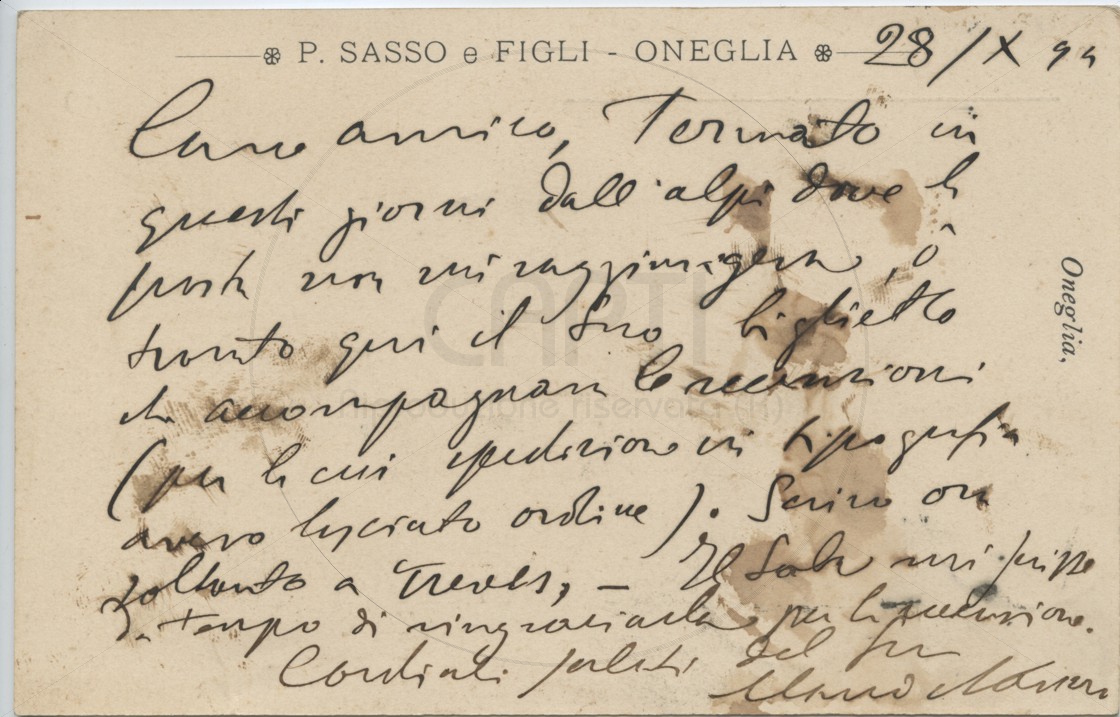 P. SASSO e FIGLI - ONEGLIA 28/X 99
Oneglia,
Caro amico, Tornato in
questi giorni dall'alpi dove la
posta non mi raggiungeva, ò
trovato qui il Suo biglietto
che accompagnava le recensioni
(per la cui spedizione in tipografia
avevo lasciato ordine). Scrivo ora
soltanto a Treves, – Il Sola mi scrisse
di ringraziarla per la recensione.
Cordiali saluti del Suo
Mario Novaro
CAPTI
Riproduzione riservata (R)